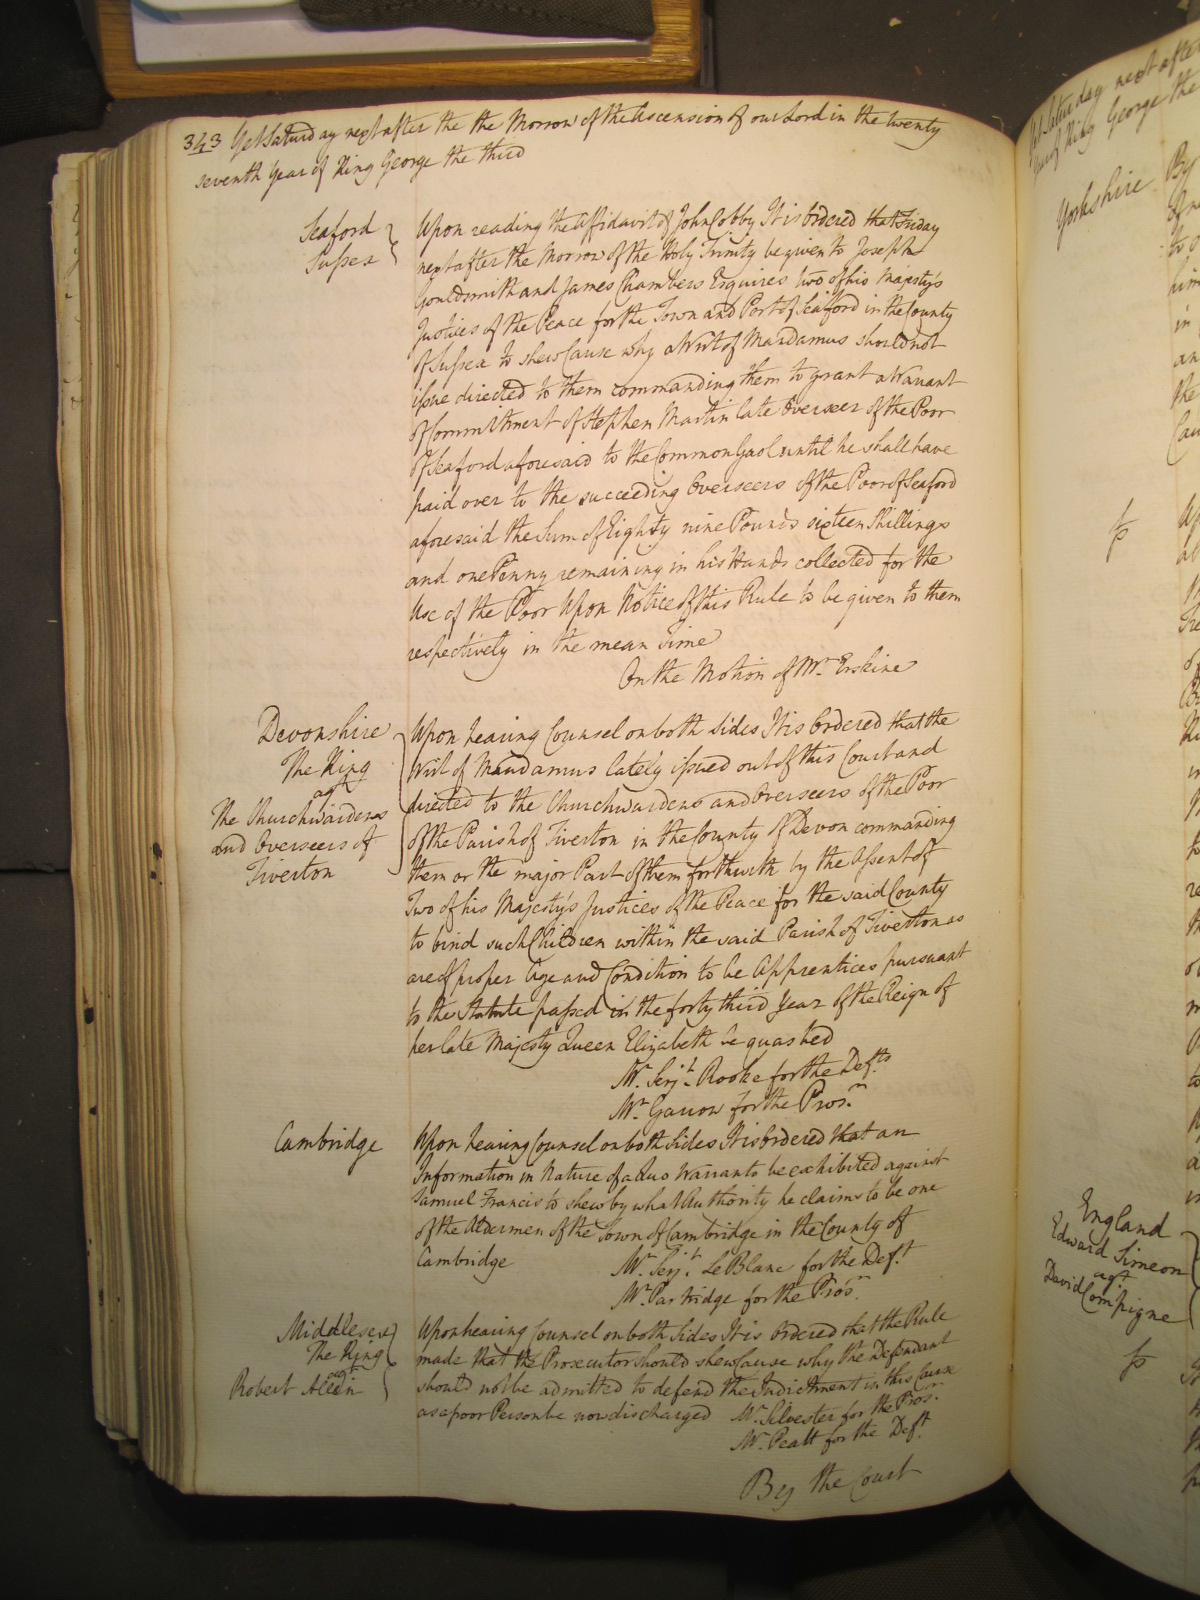 343 Yet Saturday next after the the Morrow of the Ascension of our Lord in the twenty
seventh Year of King George the third
Seaford
Sussex
Upon reading the Affidavit of John Cobby It is Ordered that Friday
next after the Morrow of the Holy Trinity be given to Joseph
Gouldsmith and James Chambers Esquires two of his Majesty's
Justices of the Peace for the Town and Port of Seaford in the County
of Sussex to shew Cause why a Writ of Mandamus should not
issue directed to them commanding them to grant a Warrant
of Commitment of Stephen Martin late Overseer of the Poor
of Seaford aforesaid to the Common Gaol until he shall have
paid over to the succeeding Overseers of the Poor of Seaford
aforesaid the Sum of Eighty nine Pounds sixteen Shillings
and one Penny remaining in his Hands collected for the
Use of the Poor Upon Notice of this Rule to be given to them
respectively in the mean Time
On the Motion of Mr. Erskine
Devonshire
The King
agt
The Churchwardens
and Overseers of
Tiverton
Upon hearing Counsel on both Sides It is Ordered that the
Writ of Mandamus lately issued out of this Court and
directed to the Churchwardens and Overseers of the Poor
of the Parish of Tiverton in the County of Devon commanding
them or the major Part of them forthwith by the Assent of
Two of his Majesty's Justices of the Peace for the said County
to bind such Children within the said Parish of Tiverton as
are of proper Age and Condition to be Apprentices pursuant
to the Statute passed in the forty third Year of the Reign of
her late Majesty Queen Elizabeth be quashed
Mr. Serjt. Rooke for the Defts
Mr. Garrow for the Prosr.
Cambridge
Upon hearing Counsel on both Sides It is Ordered that an
Information in Nature of a Quo Warranto be exhibited against
Samuel Francis to shew by what Authority he claims to be one
of the Aldermen of the Town of Cambridge in the County of
Cambridge
Mr. Serjt. Le Blanc for the Deft
Mr. Partridge for the Prosr.
Middlesex
The King
agt
Robert Allen
Upon hearing Counsel on both Sides It is Ordered that the Rule
made that the Prosecutor should shew Cause why the Defendant
should not be admitted to defend the Indictment in this Cause
as a poor Person be now discharged
Mr. Silvester for the Prosr.
Mr. Peatt for the Deft
By the Court
Yet Saturday next after
Year of King George the
Yorkshire
By
England
Edward Simeon
agt
David Compigne